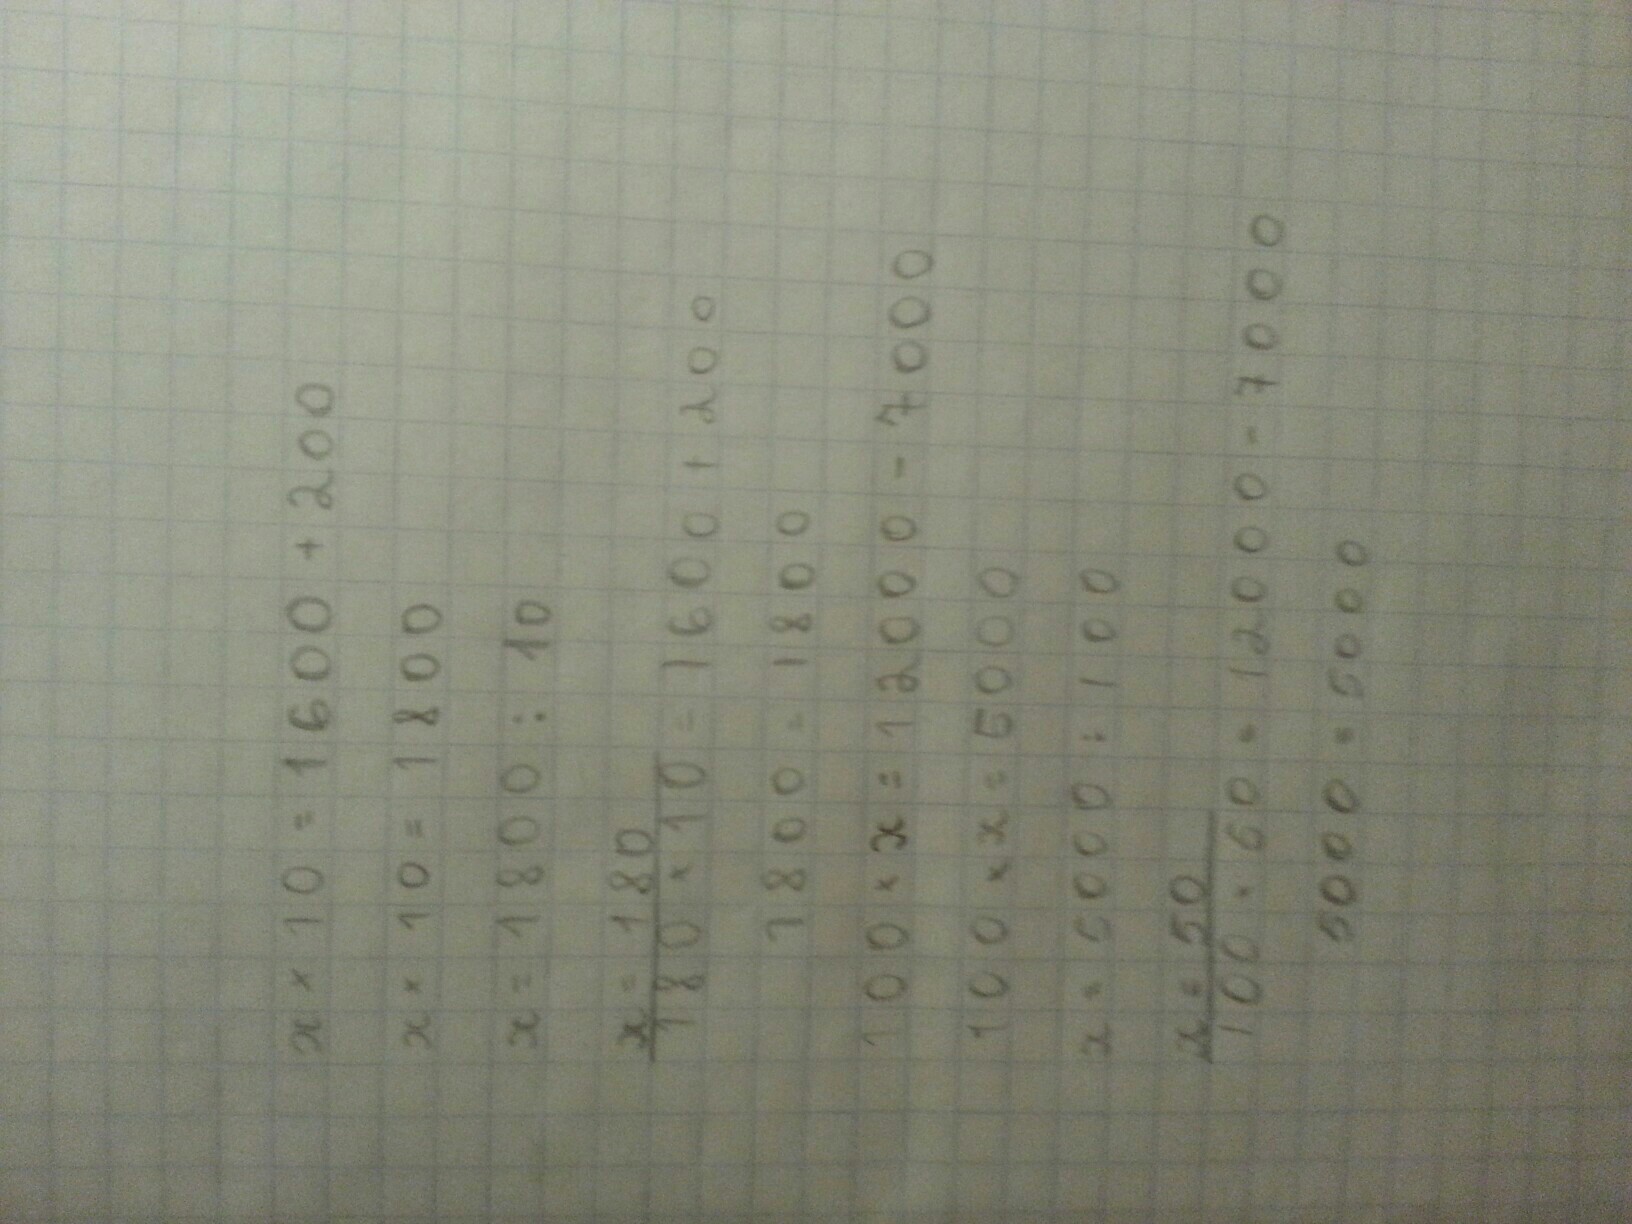 x × 10 = 1600 + 200
x × 10 = 1800
x = 1800 : 10
x = 180
180 × 10 = 1600 + 200
1800 = 1800
100 × x = 12000 - 7000
100 × x = 5000
x = 5000 : 100
x = 50
100 × 50 = 12000 - 7000
5000 = 5000